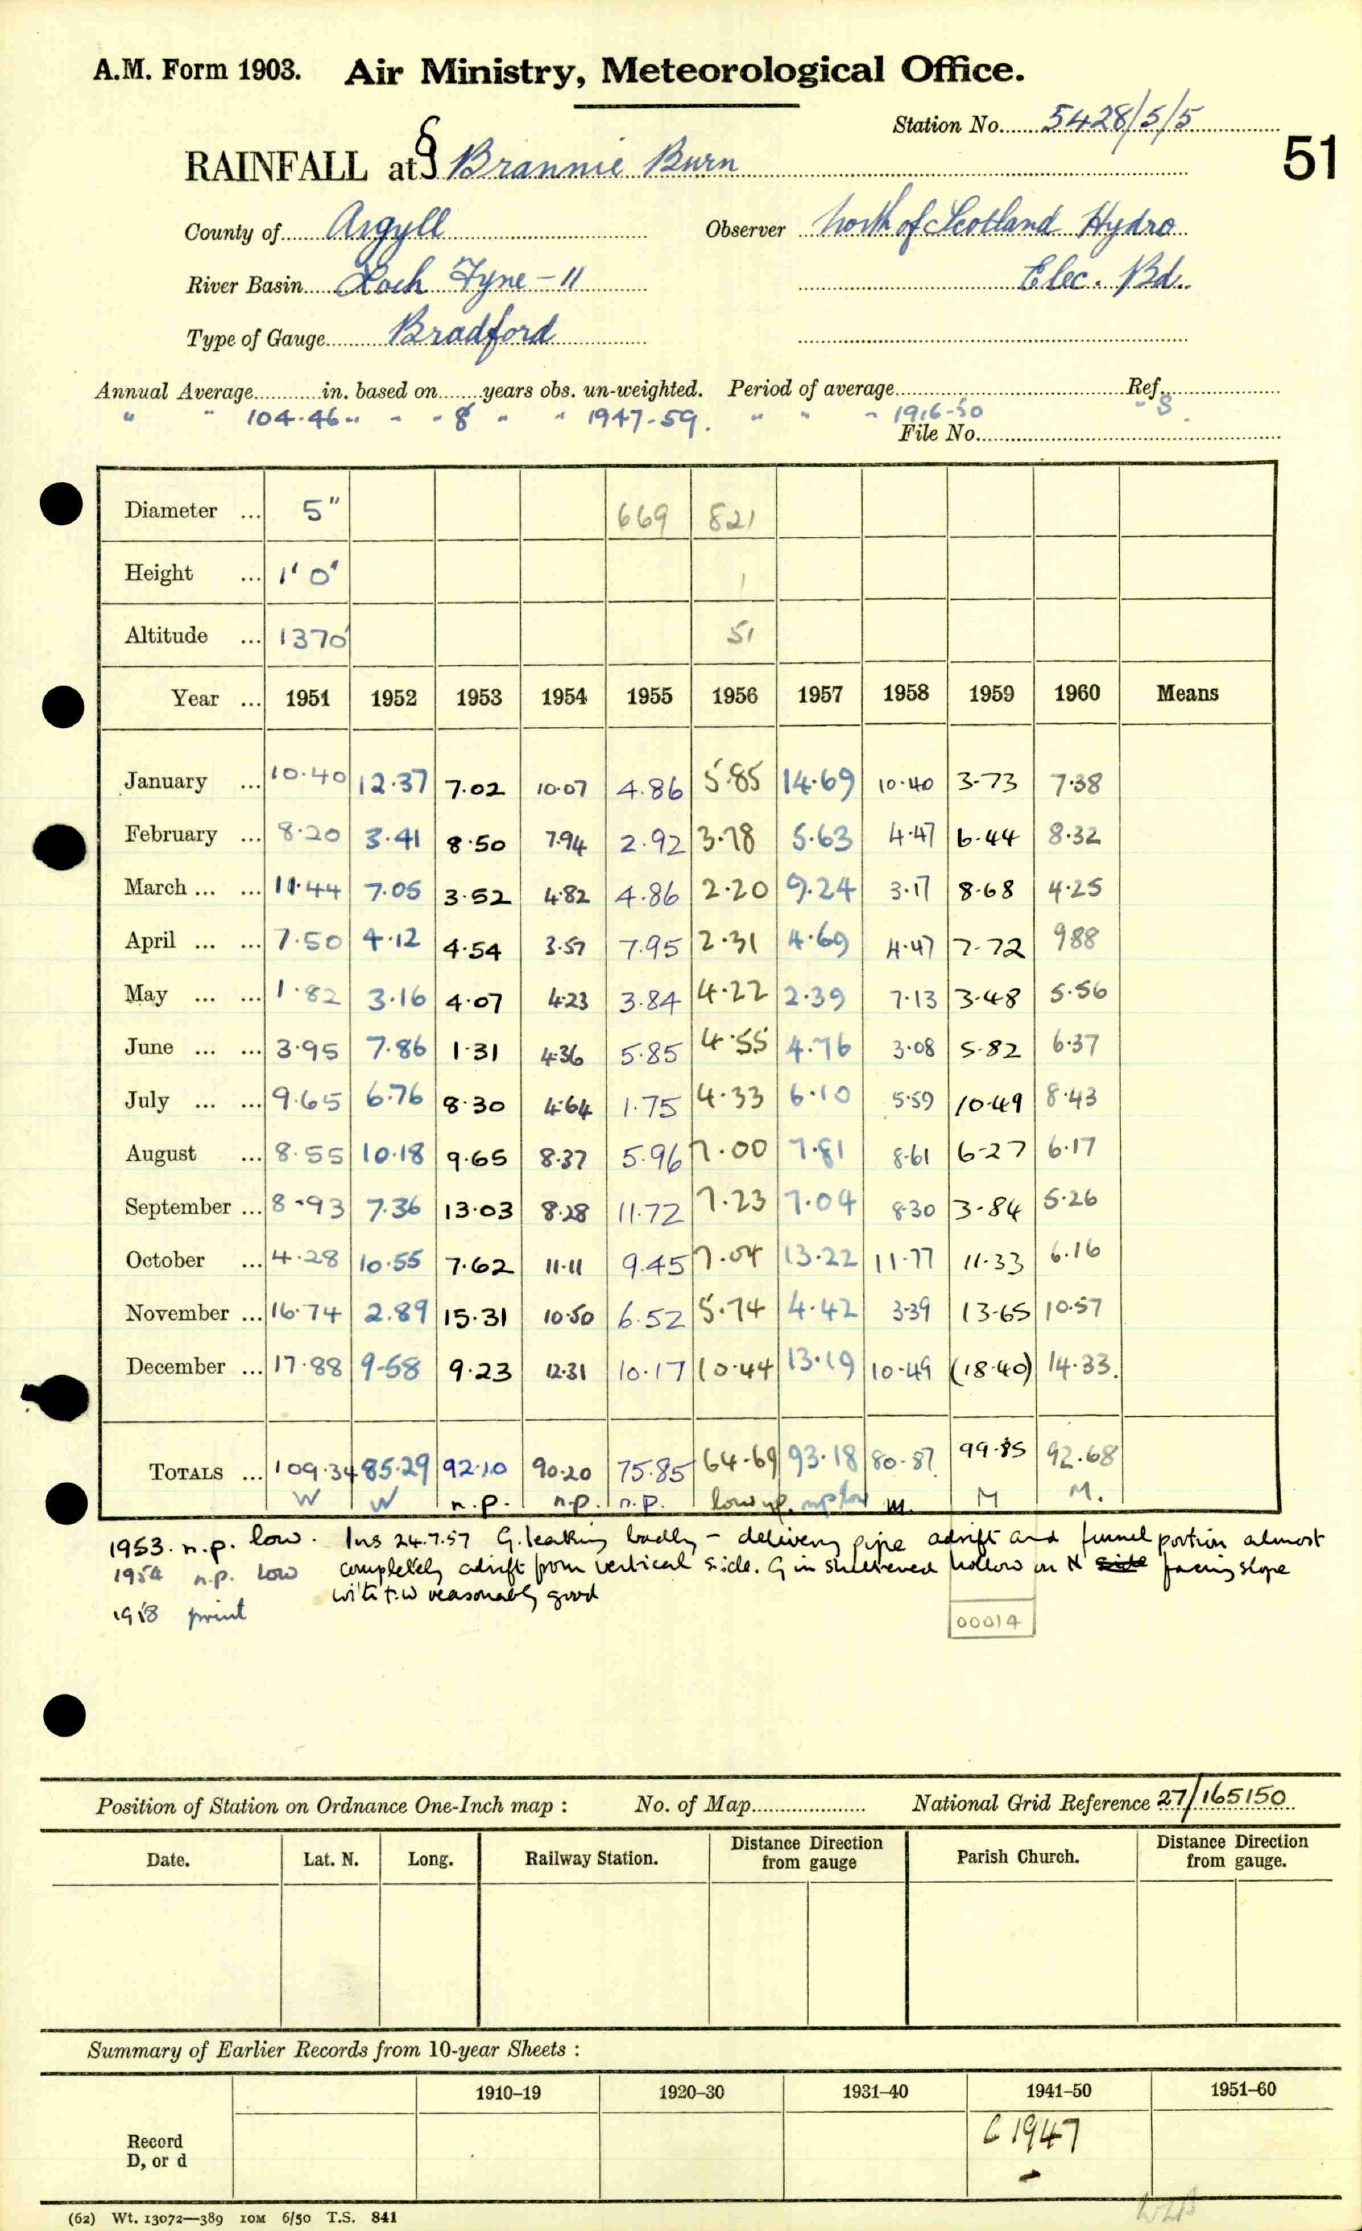 A.M. Form 1903. Air Ministry, Meteorological Office.
Station No. 5428/5/5
51
RAINFALL at § Brannie Burn
County of Argyll Observer North of Scotland Hydro
River Basin Loch Fyne - 11 Elec. Bd.
Type of Gauge Bradford
Annual Average in. based on years obs. un-weighted. Period of average Ref.
" " 104.46 " - - 8 " " 1947-59. " " - 1916-50 " S.
File No.
Diameter ... 5" 669 821
Height ... 1' 0" 1
Altitude ... 1370' 51
Year ... 1951 1952 1953 1954 1955 1956 1957 1958 1959 1960 Means
January ... 10.40 12.37 7.02 10.07 4.86 5.85 14.69 10.40 3.73 7.38
February ... 8.20 3.41 8.50 7.94 2.92 3.78 5.63 4.47 6.44 8.32
March ... ... 11.44 7.05 3.52 4.82 4.86 2.20 9.24 3.17 8.68 4.25
April ... ... 7.50 4.12 4.54 3.57 7.95 2.31 4.69 4.47 7.72 9 88
May ... ... 1.82 3.16 4.07 4.23 3.84 4.22 2.39 7.13 3.48 5.56
June ... ... 3.95 7.86 1.31 4.36 5.85 4.55 4.76 3.08 5.82 6.37
July ... ... 9.65 6.76 8.30 4.64 1.75 4.33 6.10 5.59 10.49 8.43
August ... 8.55 10.18 9.65 8.37 5.96 7.00 7.81 8.61 6.27 6.17
September ... 8.93 7.36 13.03 8.28 11.72 7.23 7.04 8.30 3.84 5.26
October ... 4.28 10.55 7.62 11.11 9.45 7.04 13.22 11.77 11.33 6.16
November ... 16.74 2.89 15.31 10.50 6.52 5.74 4.42 3.39 13.65 10.57
December ... 17.88 9.58 9.23 12.31 10.17 10.44 13.19 10.49 (18.40) 14.33.
TOTALS ... 109.34 85.29 92.10 90.20 75.85 64.69 93.18 80.87 99.85 92.68
W W n.p. n.p. n.p. low n.p. n.p low m. M M.
1953. n.p. low. Ins 24.7.57 G. leaking badly - delivery pipe adrift and funnel portion almost
1954 n.p. low completely adrift from vertical side. G in sheltered hollow on N side facing slope
1958 print with t.w reasonably good
00014
Position of Station on Ordnance One-Inch map : No. of Map National Grid Reference 27/165150
Date. Lat. N. Long. Railway Station. Distance Direction from gauge Parish Church. Distance Direction from gauge.
Summary of Earlier Records from 10-year Sheets :
1910–19 1920–30 1931–40 1941–50 1951–60
Record D, or d C 1947 -
(62) Wt. 13072—389 10M 6/50 T.S. 841